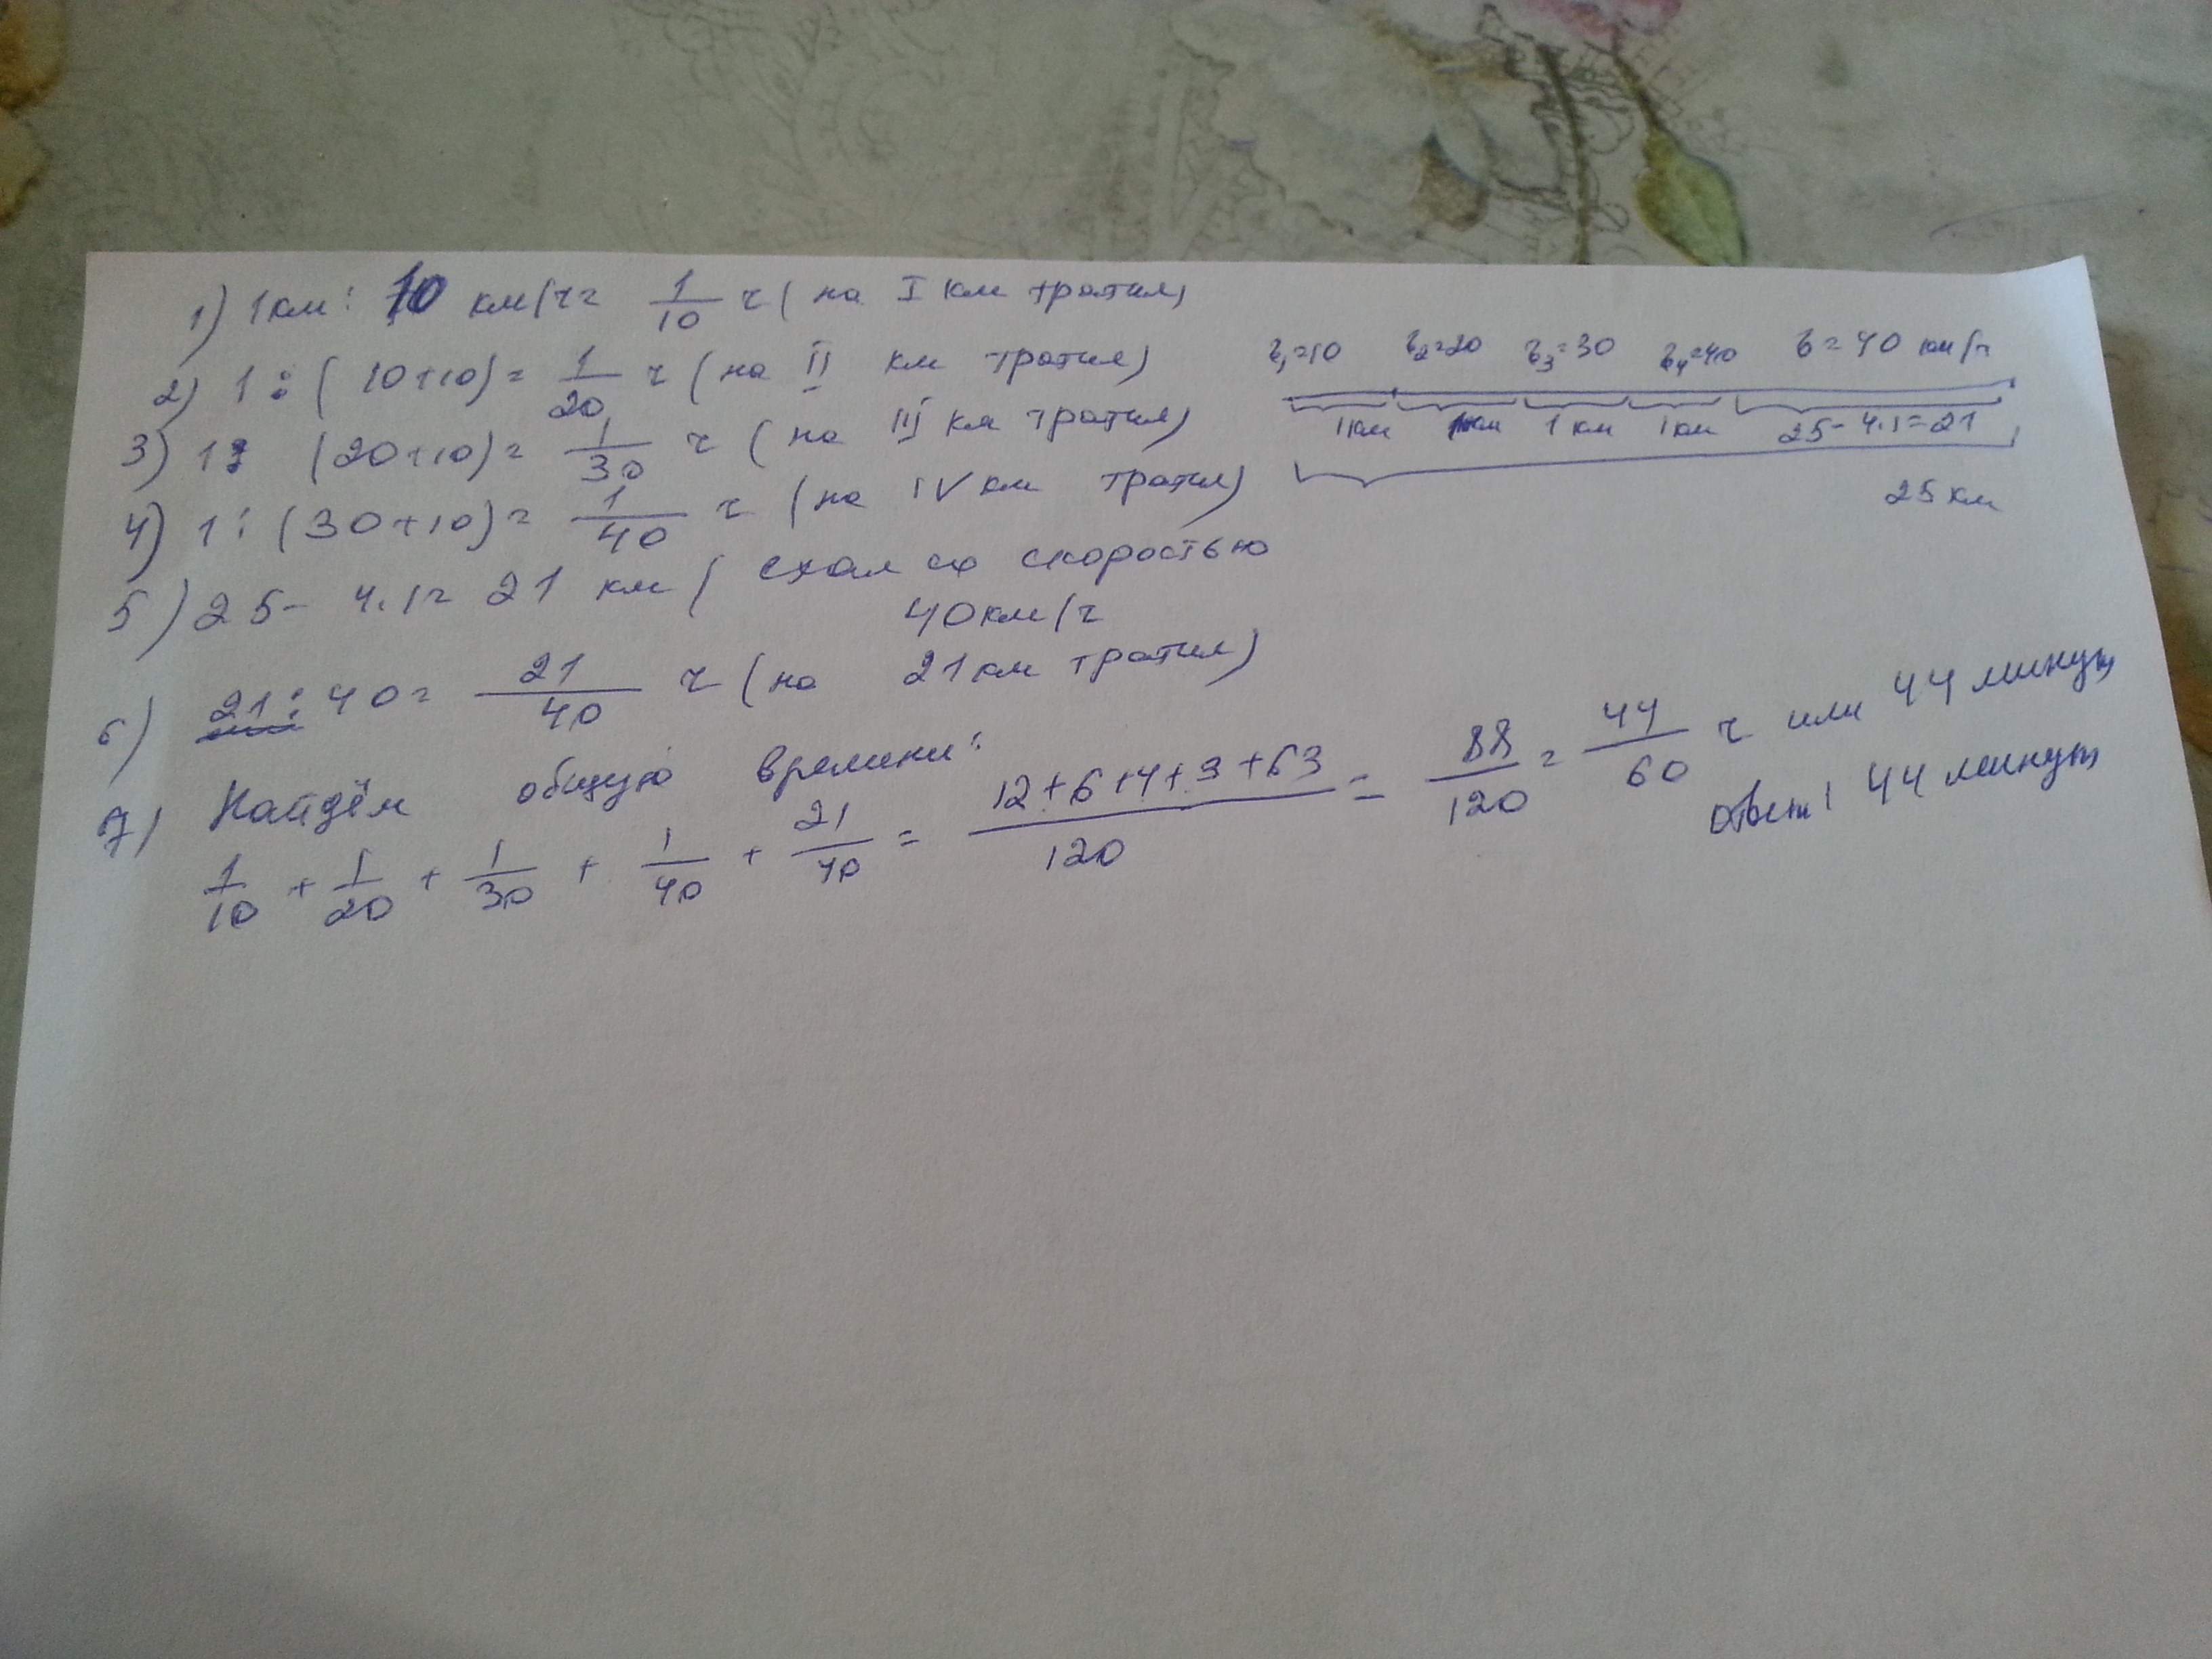 1) 1км : 10 км/ч = 1/10 ч ( на I км тратил)
2) 1 : ( 10+10) = 1/20 ч (на II км тратил)
3) 1: (20+10) = 1/30 ч (на III км тратил)
4) 1 : (30+10) = 1/40 ч (на IV км тратил)
5) 25 - 4.1 = 21 км ( ехал со скоростью
40км/ч
6) 21 : 40 = 21/40 ч (на 21 км тратил)
7) Найдём общую времени:
1/10 + 1/20 + 1/30 + 1/40 + 21/40 = 12+6+4+3+63/120 = 88/120 = 44/60 ч или 44 минут
Ответ: 44 минут
v₁=10 v₂=20 v₃=30 v₄=40 v=40 км/ч
1км 1км 1км 1км 25-4.1=21
25 км